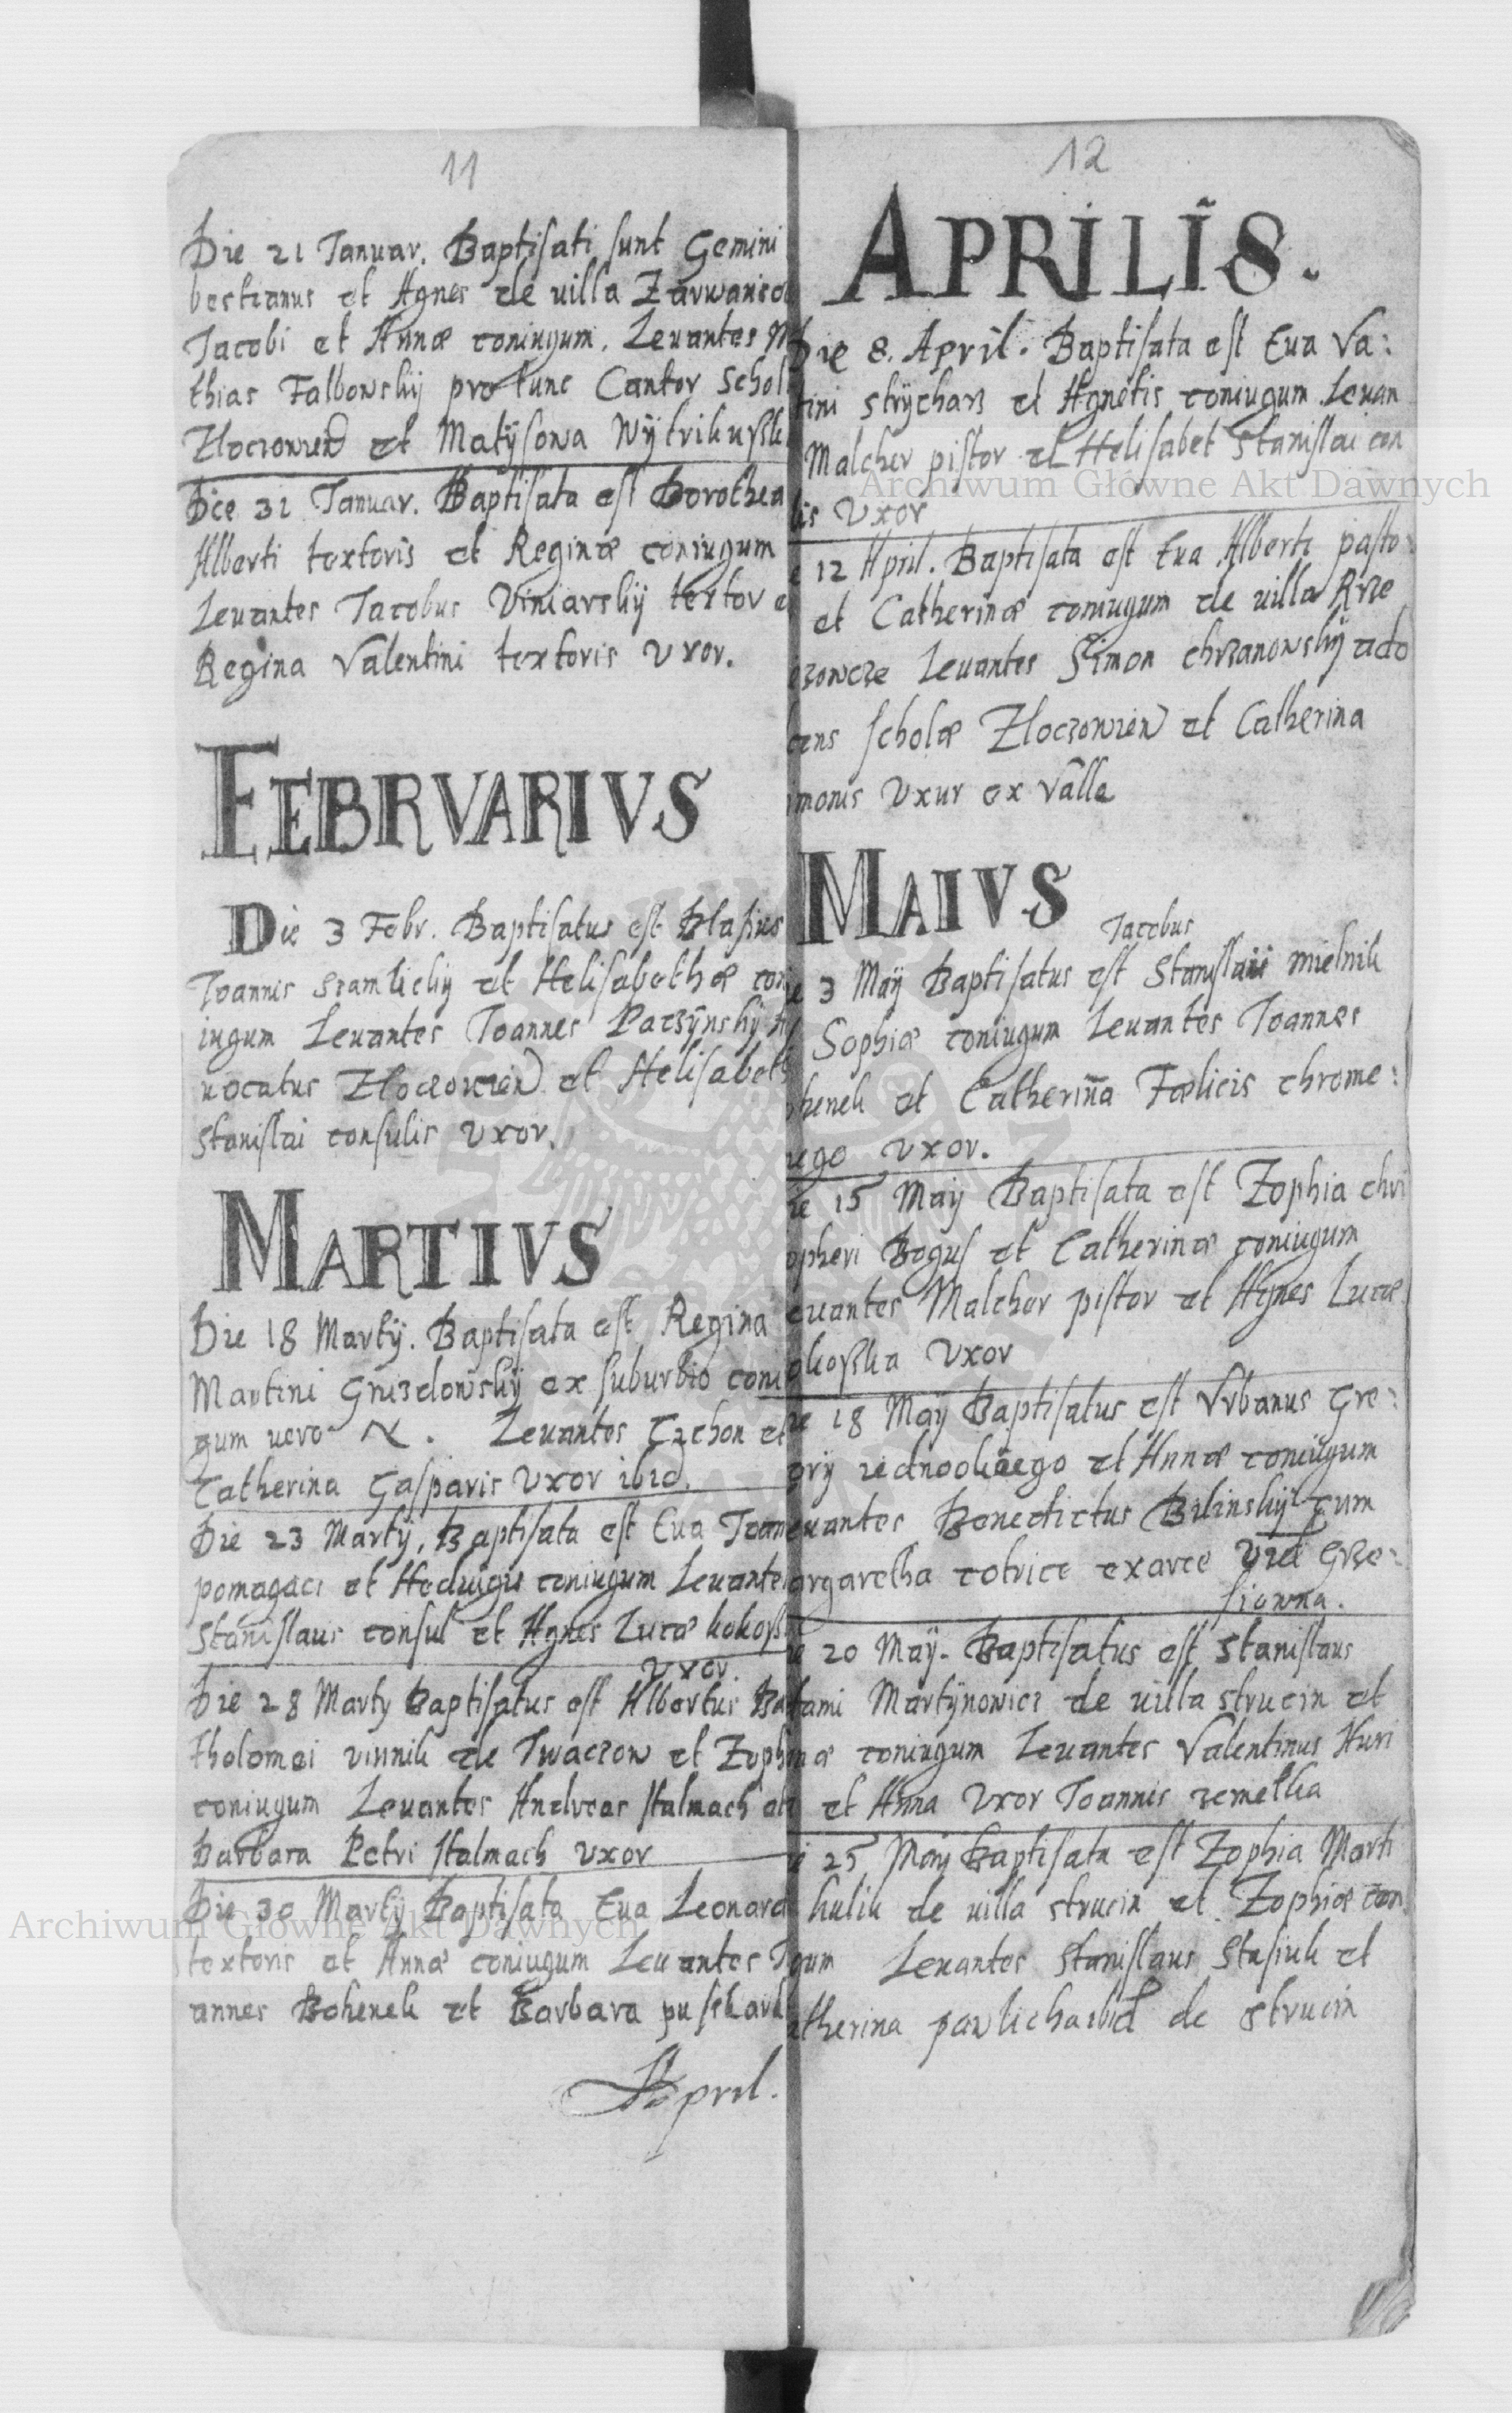 11
Die 21 Januar. Baptisati sunt Gemini
bestianus et Agnes de uilla Zarwanico
Jacobi et Annæ coniugum. Leuantes M
thias Falbowskÿ pro tunc Cantor Schol
Zloczouien et Matÿsowa
Die 31 Januar. Baptisata est Dorothea
Alberti textoris et Reginæ coniugum
Leuantes Jacobus Viniarskÿ textor e
Regina Valentini textoris Vxor.
FEBRVARIVS
Die 3 Febr. Baptisatus est Blasius
Joannis et Helisabethæ con
iugum Leuantes Joannes Paczÿnskÿ
uocatus Zloczouien et Helisabeth
Stanislai consulis Vxor.
MARTIVS
Die 18 Martÿ. Baptisata est Regina
Martini Gnizdowskÿ ex suburbio coni
gum uero N. Leuantes Czchon et
Catherina Gasparis Vxor ibid.
Die 23 Martÿ, Baptisata est Eua Joan
pomagacz et Heduigis coniugum Leuante
Stanislaus consul et Agnes Lucæ kokoszk
Vxor.
Die 28 Marty Baptisatus est Albertus Ba
tholomei vinnik de Twaczow et Zoph
coniugum Leuantes Andreas stalmach et
Barbara Petri stalmach Vxor
Die 30 Martÿ Baptisata Eua Leonard
textoris et Annæ coniugum Leuantes J
annes Bohenek et Barbara puschark
April.
12
APRILIS.
Die 8. April. Baptisata est Eua Va:
tini strÿcharz et Agnetis coniugum Leuan
Malcher pistor et Helisabet Stanislai con
lis Vxor
e 12 April. Baptisata est Eua Alberti pasto
et Catherinæ coniugum de uilla Rze
ozowcze Leuantes Simon chrzanowskÿ ado
cens scholæ Zloczouien et Catherina
imonis Vxur ex Valle
MAIVS
Jacobus
ie 3 Maÿ Baptisatus est Stanislaii mielnik
Sophiæ coniugum Leuantes Joannes
oheneh et Catherina Fælicis chrome:
nego Vxor.
ie 15 Maÿ Baptisata est Zophia chri
opheri Bogus et Catherinæ coniugum
euantes Malcher pistor et Agnes Lucæ
okoszka Vxor
ie 18 Maÿ Baptisatus est Vrbanus Gre:
orÿ iednookiego et Annæ coniugum
euantes Benedictus Bilinskÿ cum
argaretha cotrice exarce Vrd Grze:
siowna.
ie 20 Maÿ. Baptisatus est Stanislaus
ami Martÿnowicz de uilla strucin et
næ coniugum Leuantes Valentinus Huri
et Anna Vxor Joannis remetka
ie 25 Maÿ Baptisata est Zophia Marti
kulik de uilla strucin et Zophiæ con
gum Leuantes Stanislaus Stasiuk et
atherina de strucin
Archiwum Główne Akt Dawnych
Archiwum Główne Akt Dawnych